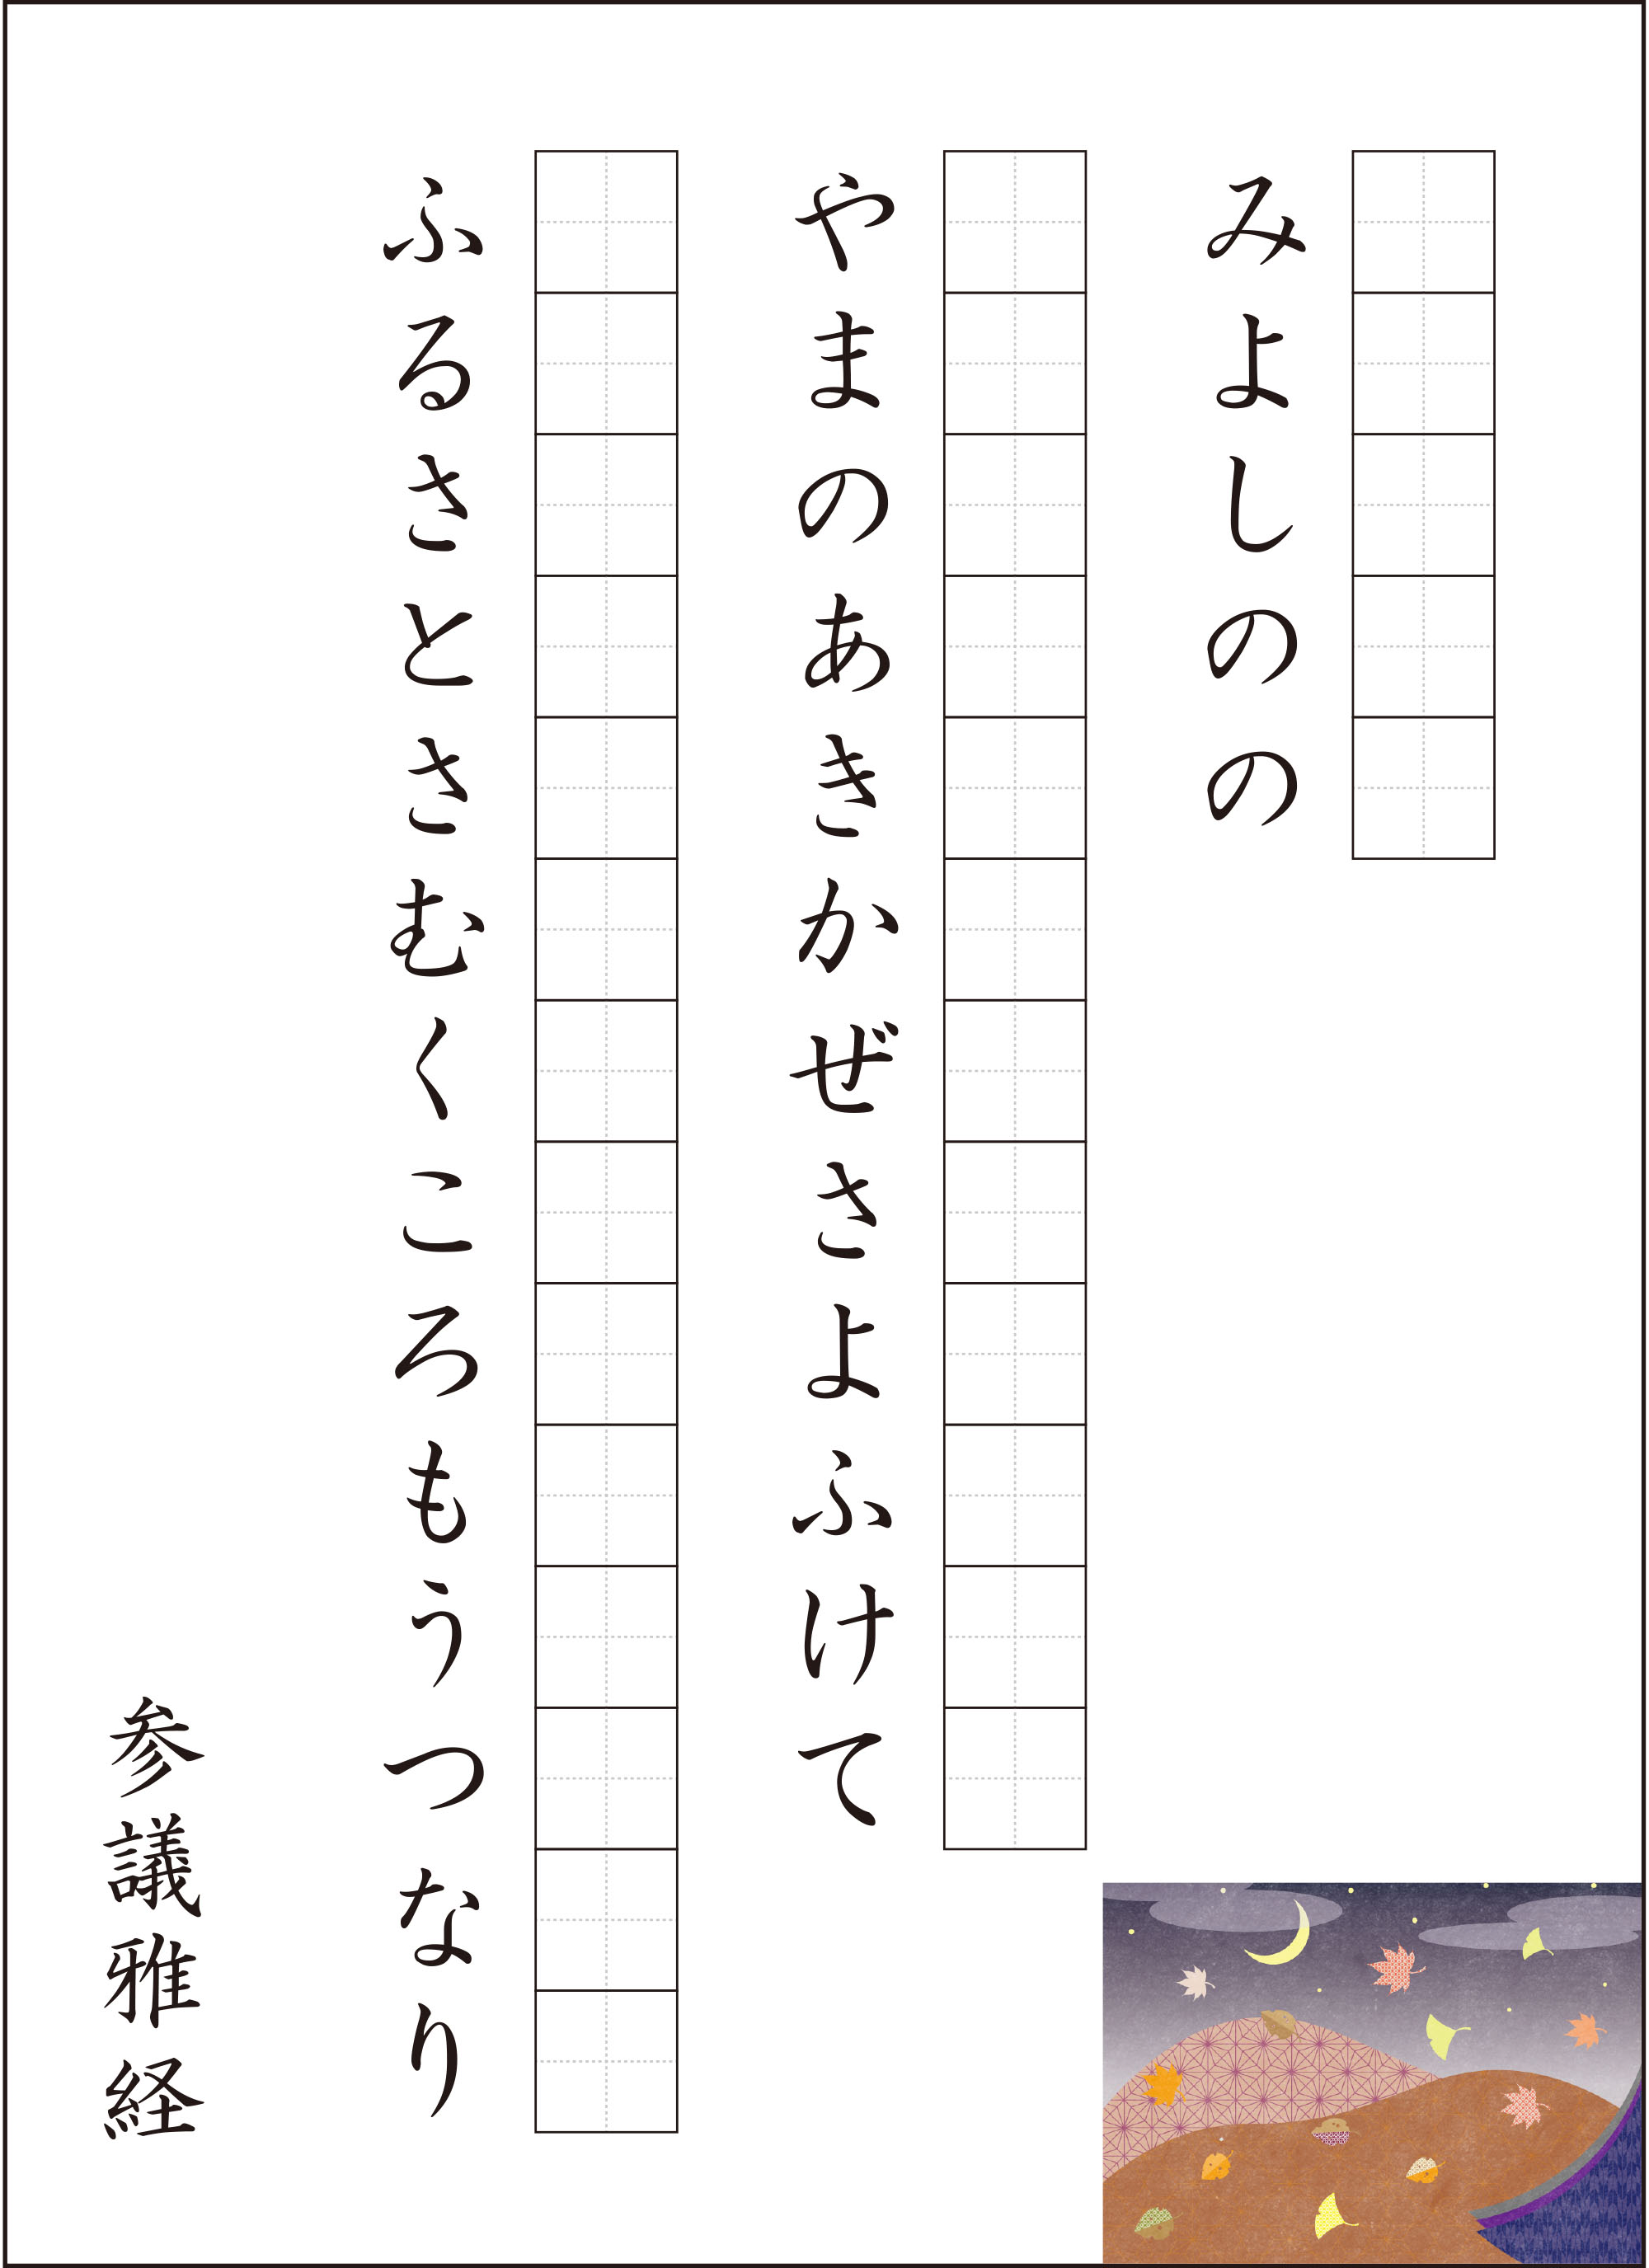 みよしのの
やまのあきかぜさよふけて
ふるさとさむくころもうつなり
参議雅経